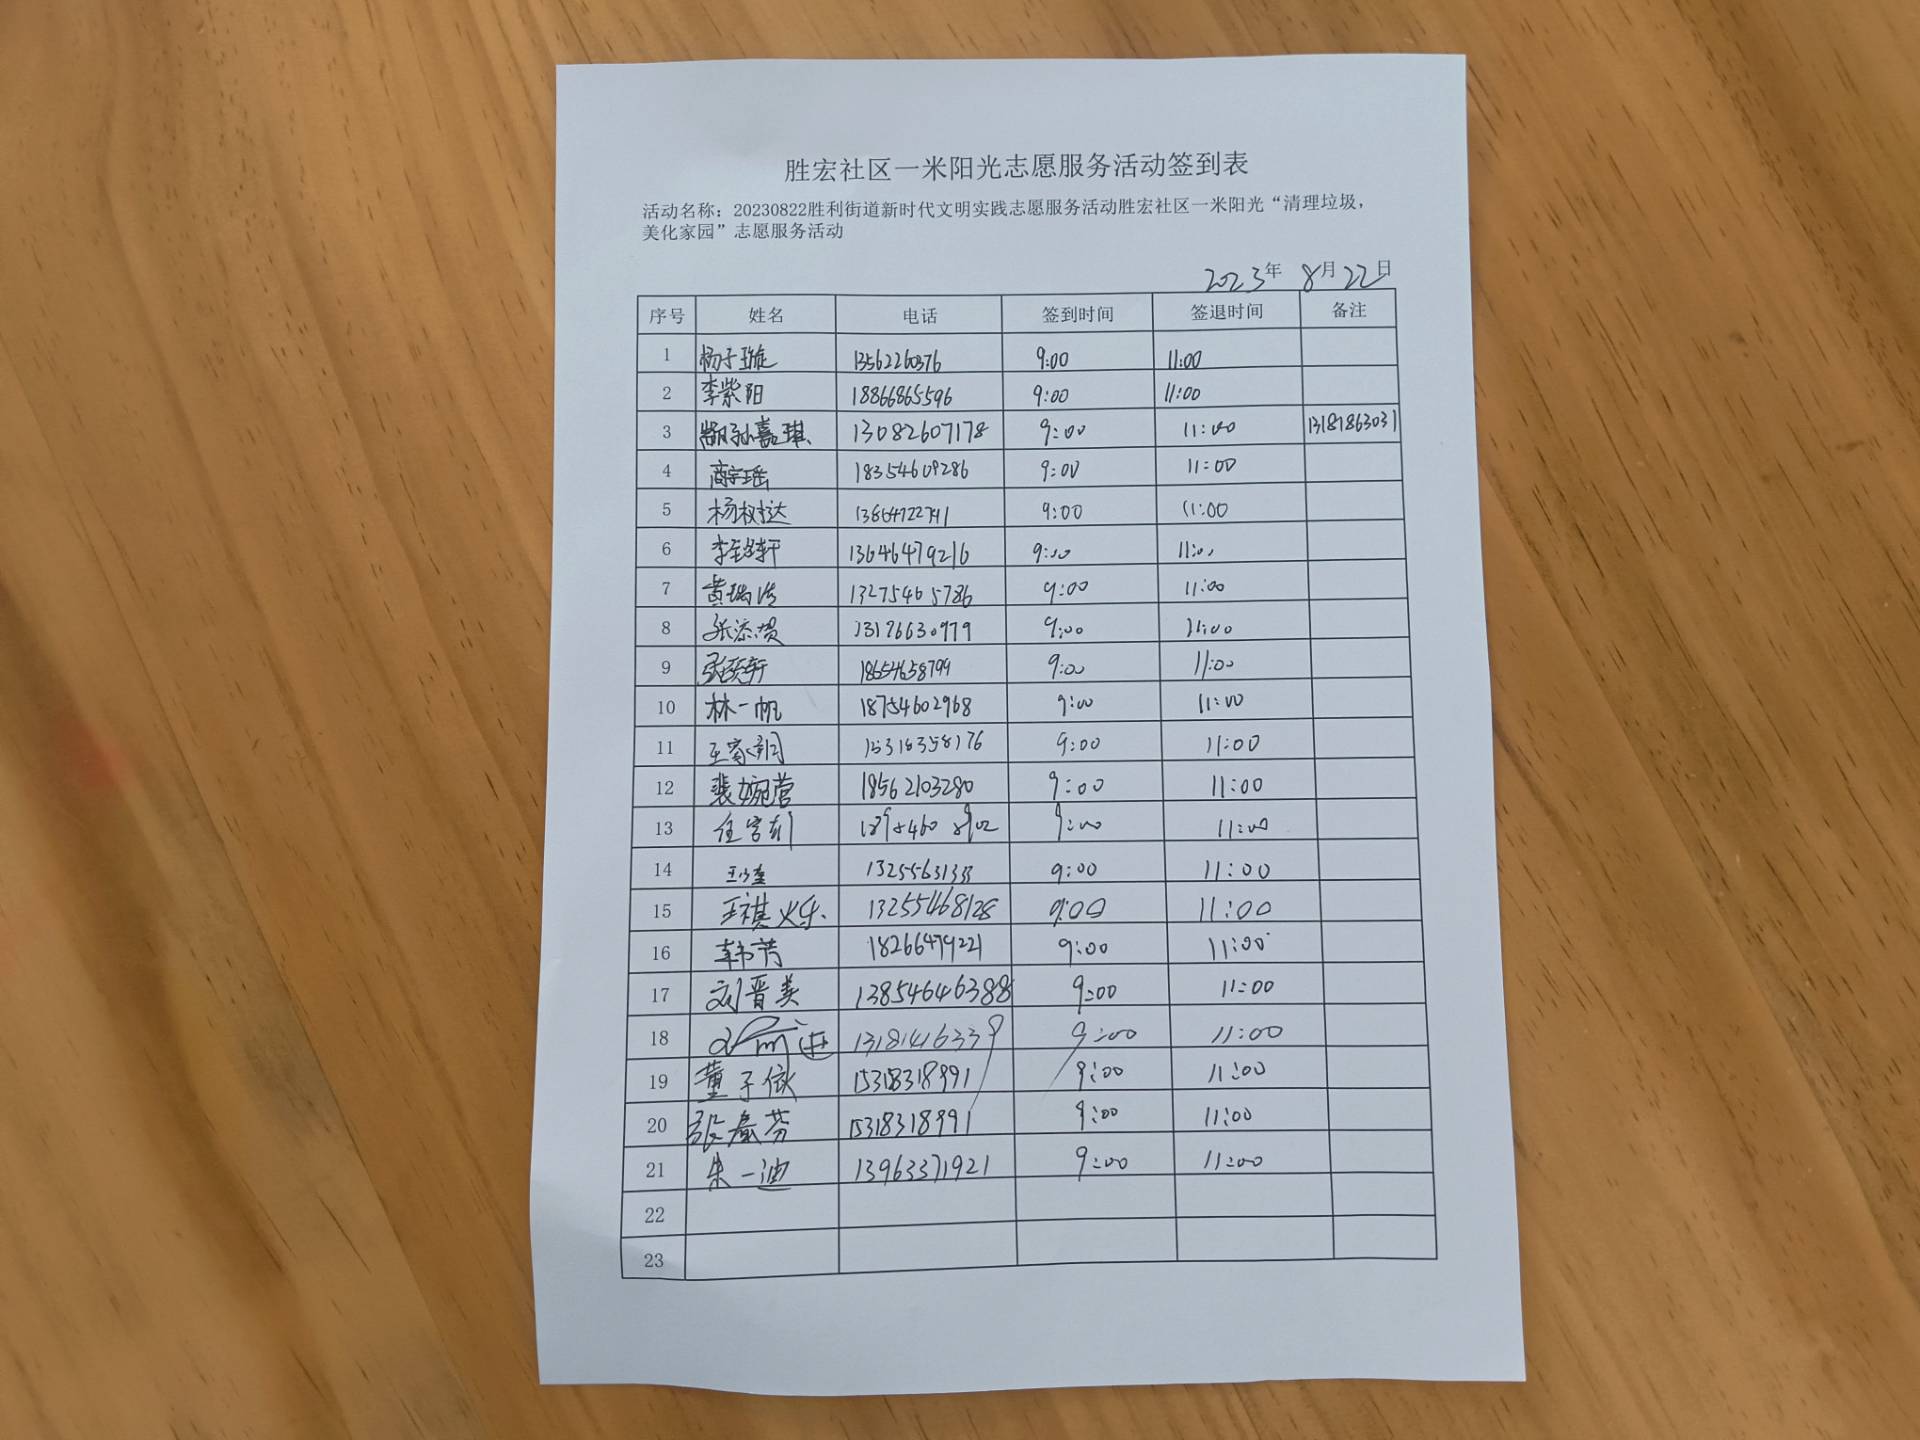 胜宏社区一米阳光志愿服务活动签到表
活动名称：20230822胜利街道新时代文明实践志愿服务活动胜宏社区一米阳光“清理垃圾，
美化家园”志愿服务活动
2023年 8月22日
序号 姓名 电话 签到时间 签退时间 备注
1 杨子璇 13562260376 9:00 11:00
2 李紫阳 18866865596 9:00 11:00
3 孙嘉琪 13082607178 9:00 11:00 13181863031
4 商宇瑶 18354609286 9:00 11:00
5 杨树达 9:00 11:00
6 13646479216 9:00 11:00
7 黄瑞浩 13275465786 9:00 11:00
8 张添贺 13176630979 9:00 11:00
9 张硕轩 18654658799 9:00 11:00
10 林一帆 18754602968 9:00 11:00
11 王家润 15318358176 9:00 11:00
12 裴婉莹 18562103280 9:00 11:00
13 9:00 11:00
14 13255631333 9:00 11:00
15 王祺 13255468128 9:00 11:00
16 韩芳 18266479221 9:00 11:00
17 刘晋美 13854646388 9:00 11:00
18 13181416339 9:00 11:00
19 董子依 15318318991 9:00 11:00
20 张春芬 15318318991 9:00 11:00
21 朱一迪 13963371921 9:00 11:00
22
23